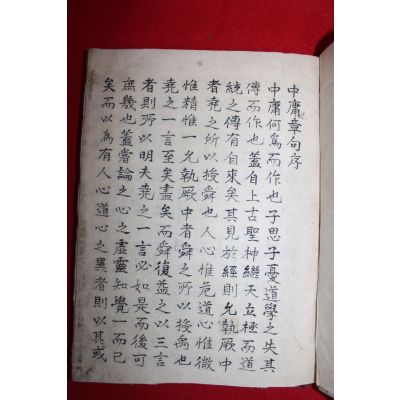 中庸章句序
中庸何爲而作也子思子憂道學之失其
傳而作也蓋自上古聖神繼天立極而道
統之傳有自來矣其見於經則允執厥中
者堯之所以授舜也人心惟危道心惟微
惟精惟一允執厥中者舜之所以授禹也
堯之一言至矣盡矣而舜復益之以三言
者則所以明夫堯之一言必如是而後可
庶幾也蓋嘗論之心之虛靈知覺一而已
矣而以爲有人心道心之異者則以其或